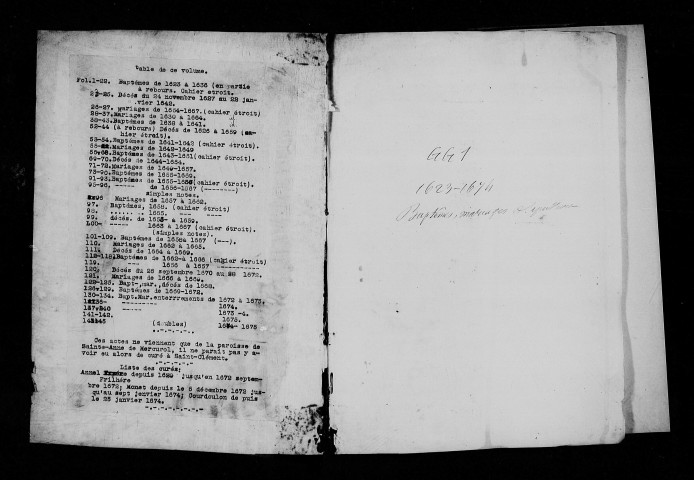 table de ce volume.
Fol.1-22. Baptêmes de 1623 à 1638 (en partie
à rebours. Cahier étroit.
22-25. Décés du 24 novembre 1627 au 28 jan-
vier 1642.
26-27. mariages de 1654-1657.(cahier étroit)
28-37.Mariages de 1630 à 1664.
38-43.Baptêmes de 1638 à 1641.
52-44 (à rebours) Décés de 1626 à 1659 (ca-
hier étroit).
53-54.Baptêmes de 1641-1642 (cahier étroit).
Mariages de 1642-1649
Baptêmes de 1643-1651(cahier étroit).
69-70.Décés de 1644-1654.
71-72.Mariages de 1649-1657.
73-90.Baptêmes de 1655-1669.
91-93.Baptêmes de 1655-1656(cahier étroit).
95-96, ----- de 1656-1657 (--------)
simples notes.
96 Mariages de 1657 à 1662.
97. Baptêmes, 1658. (cahier étroit)
98. ....... 1655. --- ----
99. décés. de 1653- à 1659.
100- ----- 1663 à 1667 (cahier étroit)
(simples notes).
101-109. Baptêmes de 1658à 1667 (---).
110. Mariages de 1662 à 1665.
111. Décés de 1664 à 1669.
112-118.Baptêmes de 1662-à 1666 (cahier étroit)
119. --- 1656 à 1657 -----------
120. Décés du 26 septembre 1670 au 28 1672.
121. Mariages de 1666 à 1669.
122-125. Bapt-,mar.,décés de 1668.
126-129. Baptêmes de 1669-1672.
130-134. Bapt.Mar.enterrrements de 1672 à 1673.
--------- 1674.
--------- 1673 -4.
141-142. 1675.
(doubles) 1674- 1675
Ces actes ne viennent que de la paroisse de
Sainte-Anne de Mercurol, il ne parait pas y a-
voir eu alors de curé à Saint-Clément.
Liste des curés:
Annel depuis 1629 ;jusqu'en 1672 septem-
Frilhère
bre 1672; Monet depuis le 5 décembre 1672 jus-
qu'au sept janvier 1674; Courdoulon de puis
le 25 janvier 1674.
GG 1
1623-1674
Baptêmes, mariages